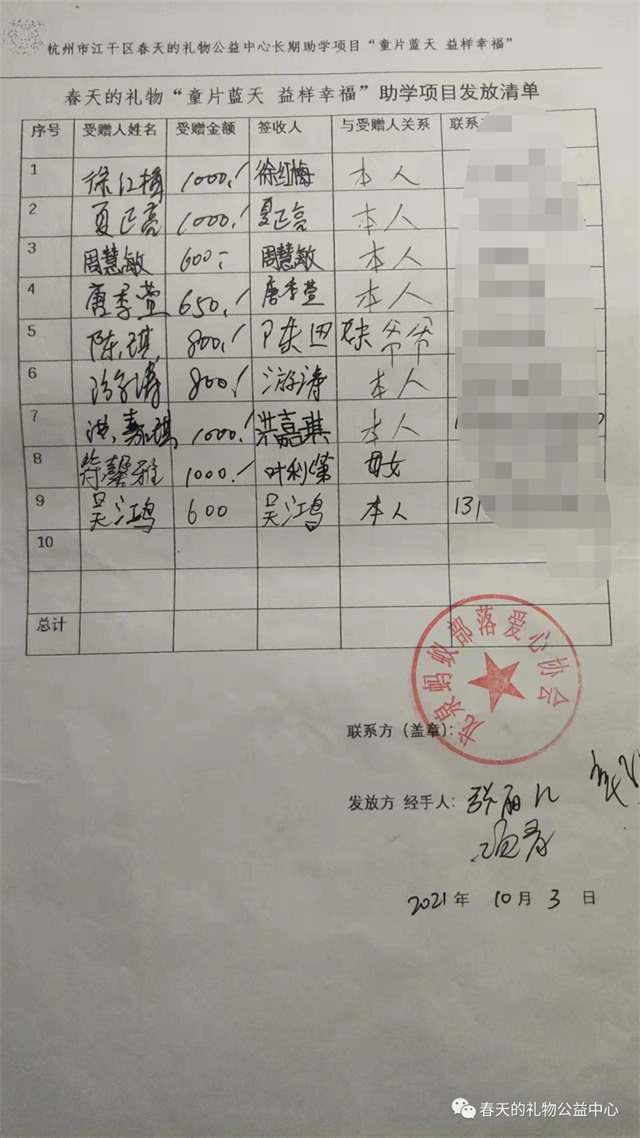 杭州市江干区春天的礼物公益中心长期助学项目“童片蓝天 益样幸福”
春天的礼物“童片蓝天 益样幸福”助学项目发放清单
序号 受赠人姓名 受赠金额 签收人 与受赠人关系 联系
1 徐红梅 1000./ 徐红梅 本人
2 夏正亮 1000./ 夏正亮 本人
3 周慧敏 600 周慧敏 本人
4 唐季萱 650./ 唐季萱 本人
5 陈琪 800./ 爷爷
6 800./ 本人
7 洪嘉琪 1000./ 洪嘉琪 本人
8 馨雅 1000./ 叶利 母女
9 吴江鸿 600 吴江鸿 本人 131
10
总计
龙泉蚂蚁部落爱心协会
联系方（盖章）：
发放方 经手人：
2021年 10月 3 日
春天的礼物公益中心